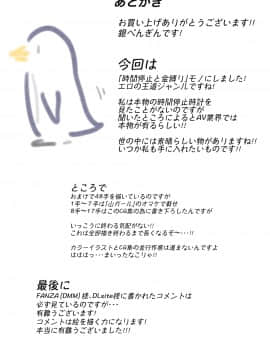 あとがき
お買い上げありがとうございます!!
銀ぺんぎんです!
今回は
「時間停止と金縛り」モノにしました!
エロの王道ジャンルですね!
私は本物の時間停止時計を
見たことがないのですが
聞いたところによるとAV業界では
本物が有るらしい!!
世の中には素晴らしい物がありますね!!
いつか私も手に入れたいものです!!
ところで
おまけで48手を描いているのですが
1手〜7手は「山パール」のオマケで載せ
8手〜17手はこのCG集の為に書き下ろしたんですが
いっこうに終わる気配がない!!
これは全部描き終わるまで長くなるぞ〜・・・!!
カラーイラストとCG集の並行作業は進まないんですよ
はははっ・・・まいったなこりゃ!!
最後に
FANZA(DMM)様、DLsite様に書かれたコメントは
必ず見ているのですが・・・
有難うございます!
コメントは絵を描く力になります!
本当に有難うございます!!!